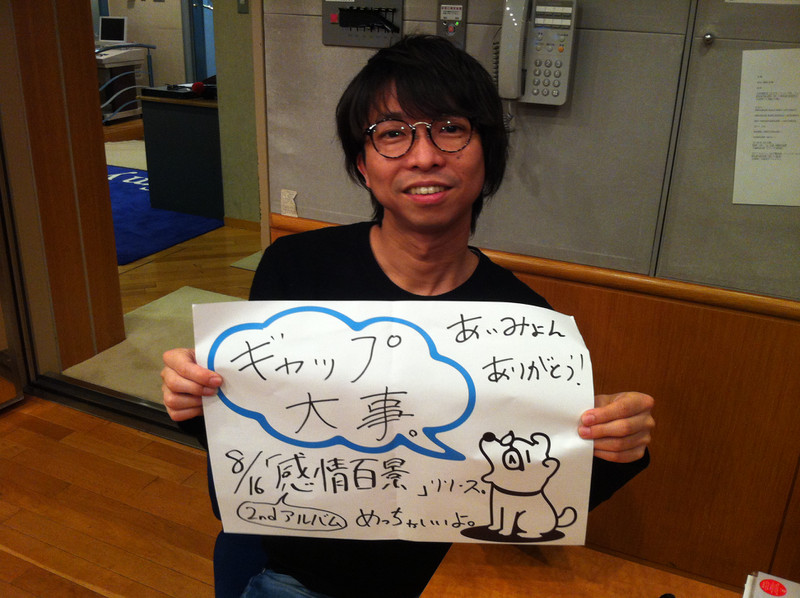 ギャップ
大事。
あいみょん
ありがとう!
8/16「感情百景」リリース。
2ndアルバム めっちゃいいよ。